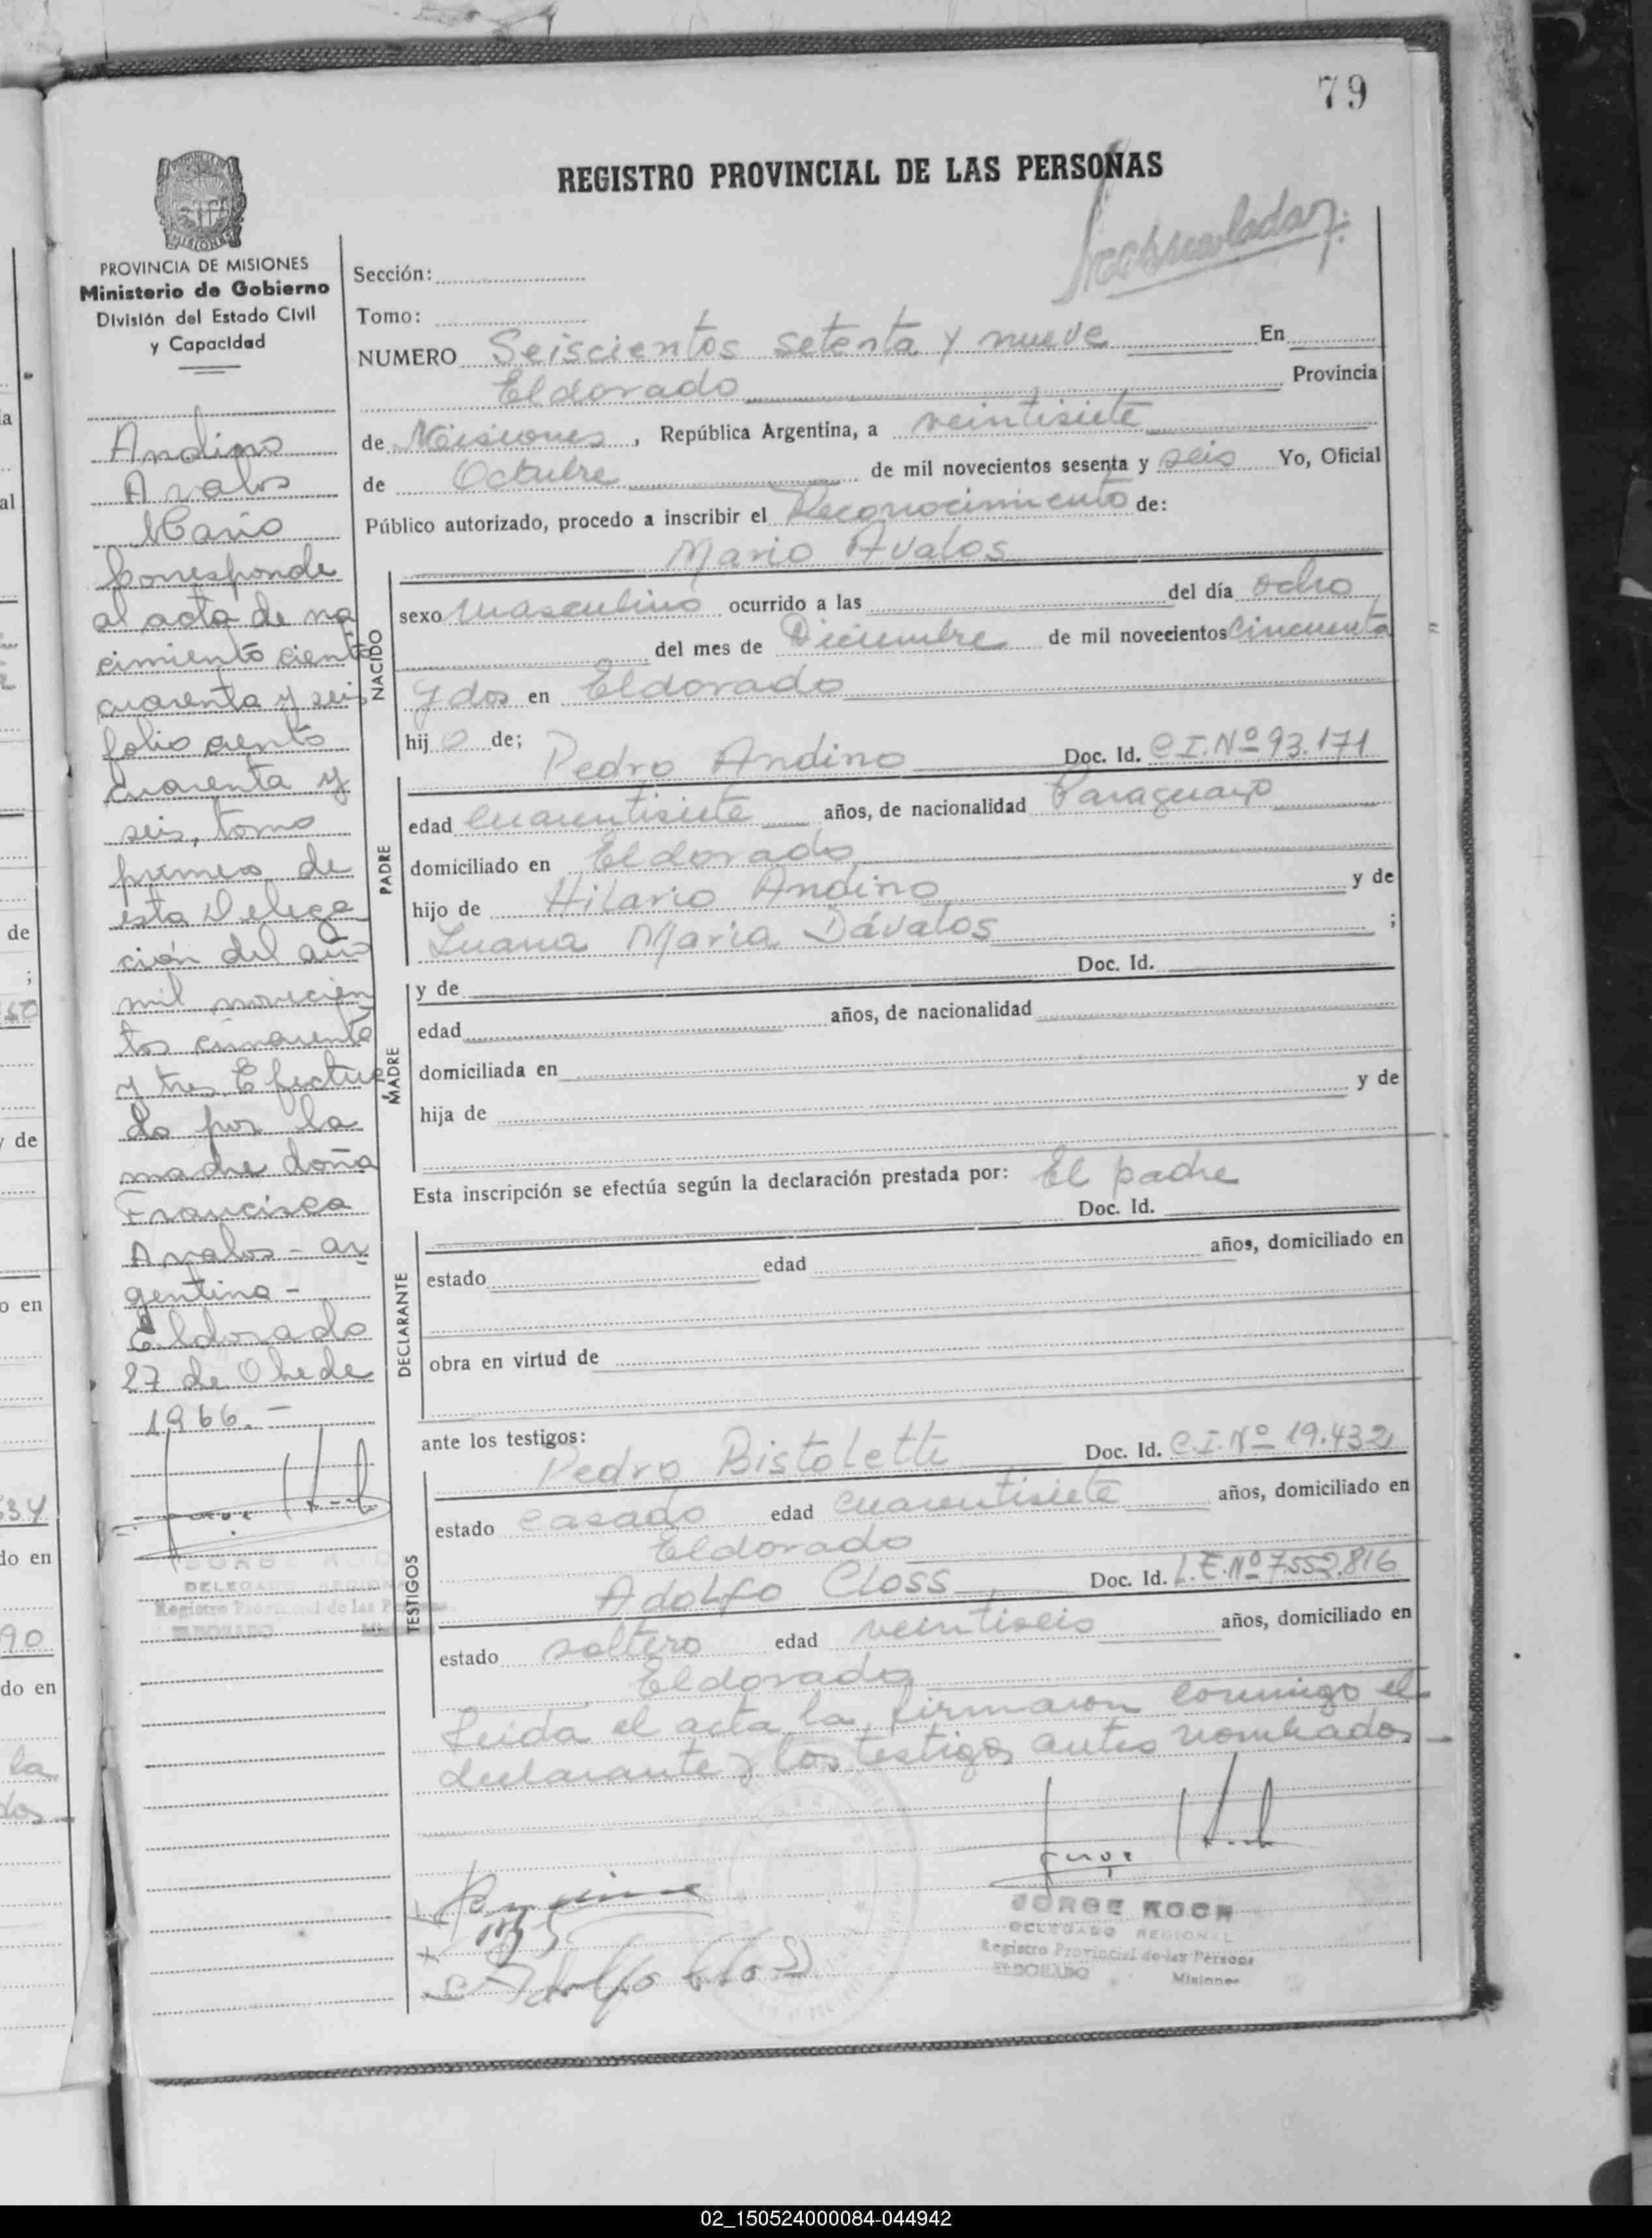 79
REGISTRO PROVINCIAL DE LAS PERSONAS
MISIONES
PROVINCIA DE MISIONES
Ministerio de Gobierno
División del Estado Civil
y Capacidad
Andino
Avalos
Mario
Corresponde
al acta de na
cimiento ciento
cuarenta y seis
folio ciento
cuarenta y
seis, tomo
primero de
esta Delega
ción del año
mil novecien
tos cincuenta
y tres. Efectua
do por la
madre doña
Francisca
Avalos - ar
gentina -
Eldorado
27 de Obe de
1966. -
Sección:
Tomo:
NUMERO Seiscientos setenta y nueve En
Eldorado Provincia
de Misiones, República Argentina, a veintisiete
de Octubre de mil novecientos sesenta y seis Yo, Oficial
Público autorizado, procedo a inscribir el Reconocimiento de:
Mario Avalos
NACIDO
sexo masculino ocurrido a las del día ocho
del mes de Diciembre de mil novecientos cincuenta
y dos en Eldorado
hijo de;
Pedro Andino Doc. Id. C.I.Nº 93.171
PADRE
edad cuarentisiete años, de nacionalidad Paraguayo
domiciliado en Eldorado
hijo de Hilario Andino y de
Juana Maria Dávalos ;
MADRE
y de Doc. Id.
edad años, de nacionalidad
domiciliada en
hija de y de
Esta inscripción se efectúa según la declaración prestada por: El padre
Doc. Id.
DECLARANTE
estado edad años, domiciliado en
obra en virtud de
ante los testigos:
TESTIGOS
Pedro Bistoletti Doc. Id. C.I.Nº 19.432
estado casado edad cuarentisiete años, domiciliado en
Eldorado
Adolfo Closs, Doc. Id. L.E.Nº 7.552.816
estado soltero edad veintiseis años, domiciliado en
Eldorado
Leida el acta la firmaron conmigo el
declarante y los testigos antes nombrados -
Adolfo Closs
JORGE KOCH
DELEGADO REGIONAL
Registro Provincial de las Personas
ELDORADO Misiones
02_150524000084-044942